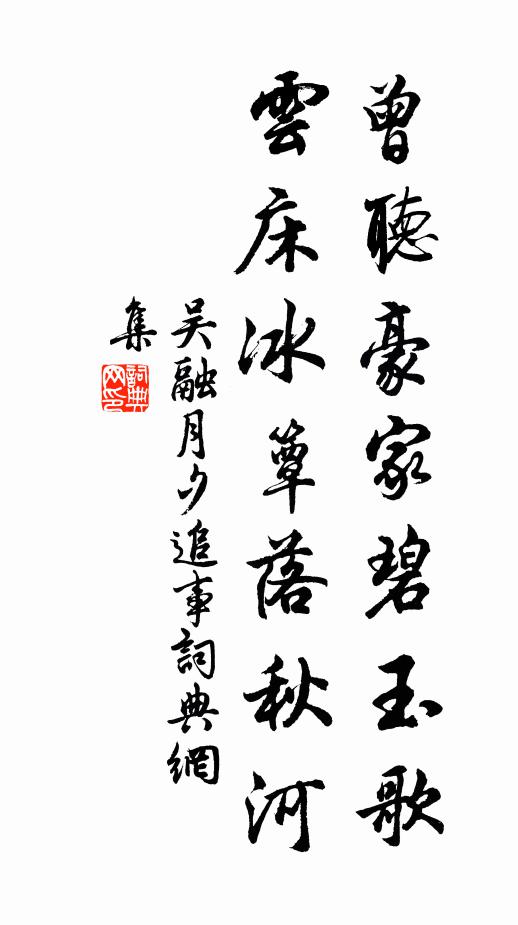 曾聽豪家碧玉歌
雲床冰簟落秋河
吴融月夕追事詞典網
集
詞典
网印